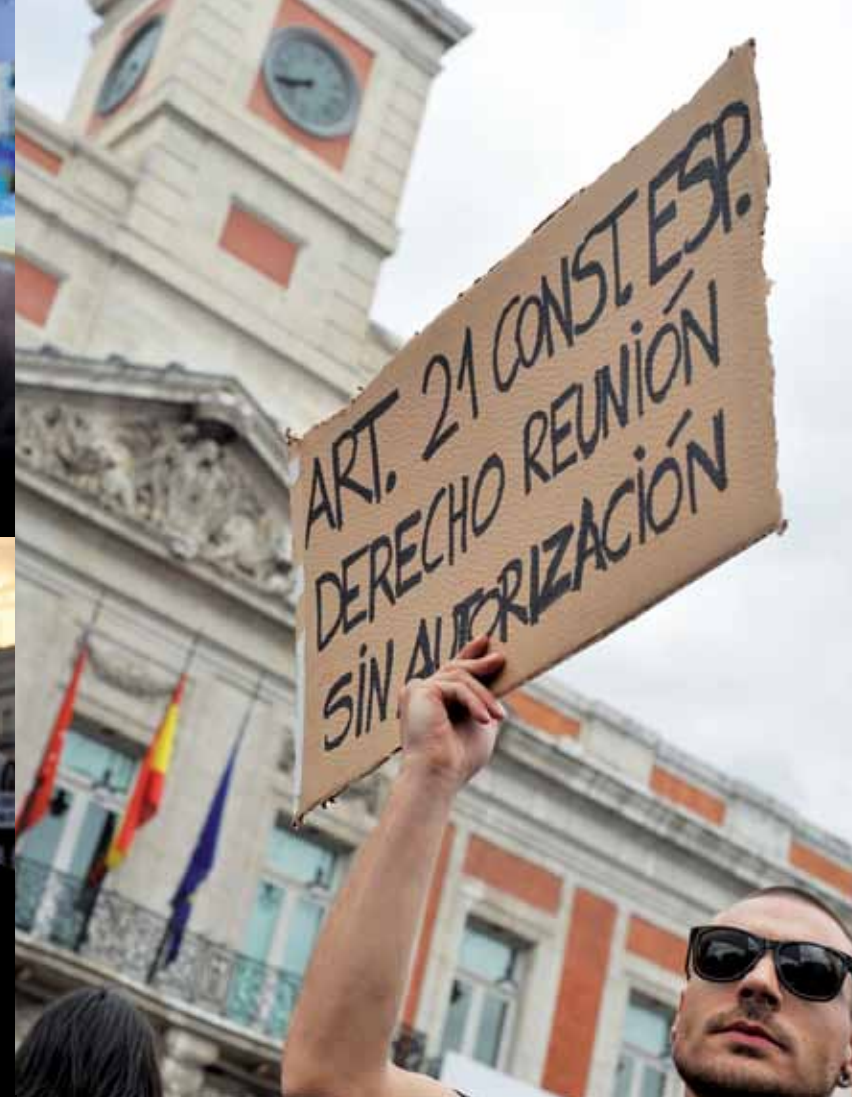 ART. 21 CONST. ESP.
DERECHO REUNIÓN
SIN AUTORIZACIÓN